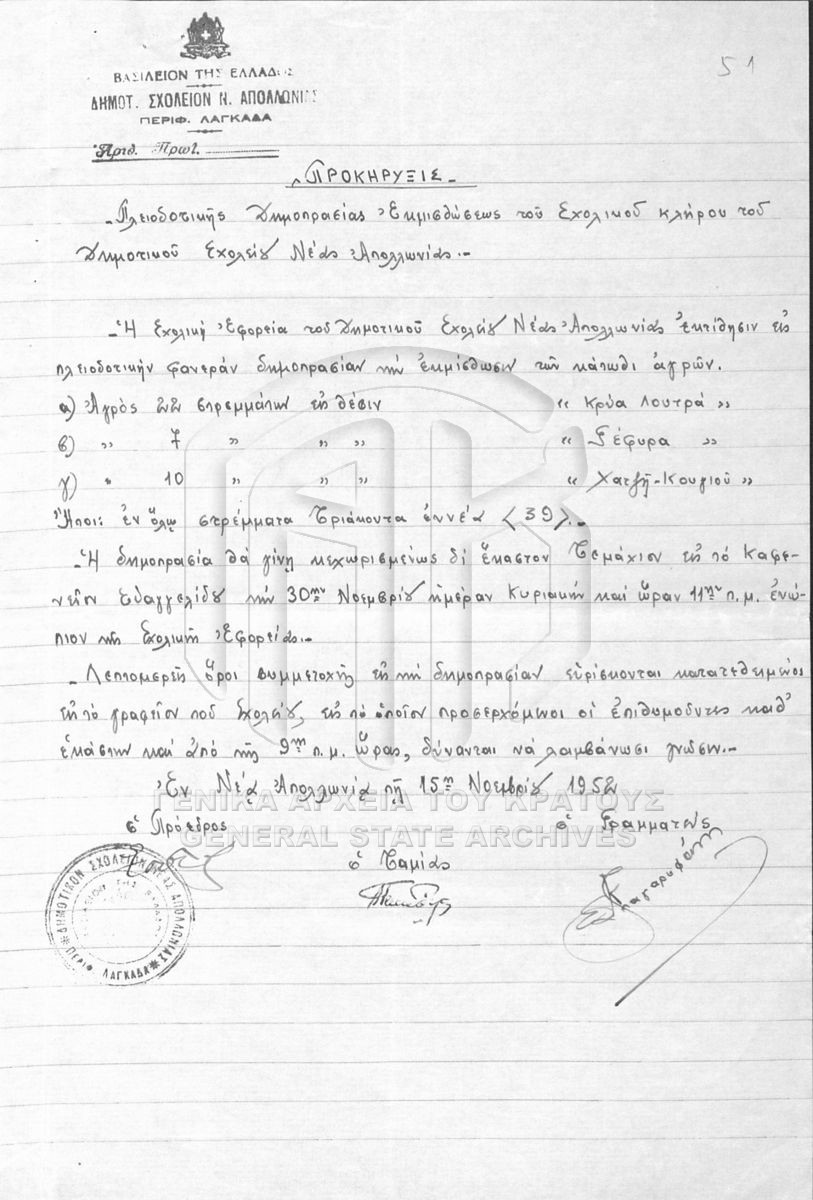 51
ΒΑΣΙΛΕΙΟΝ ΤΗΣ ΕΛΛΑΔΟΣ
ΔΗΜΟΤ. ΣΧΟΛΕΙΟΝ Ν. ΑΠΟΛΛΩΝΙΑΣ
ΠΕΡΙΦ. ΛΑΓΚΑΔΑ
Ἀριθ. Πρωτ.
"ΠΡΟΚΗΡΥΞΙΣ"
-Πλειοδοτικῆς Δημοπρασίας Ἐκμισθώσεως τοῦ Σχολικοῦ κλήρου τοῦ
Δημοτικοῦ Σχολείου Νέας Ἀπολλωνίας.-
-Ἡ Σχολική Ἐφορεία τοῦ Δημοτικοῦ Σχολείου Νέας Ἀπολλωνίας ἐκτίθησιν εἰς
πλειοδοτικήν φανεράν δημοπρασίαν τήν ἐκμίσθωσιν τῶν κάτωθι ἀγρῶν.
α) Ἀγρός 22 στρεμμάτων εἰς θέσιν " Κρύα Λουτρά "
β) " 7 " " " " Γέφυρα "
γ) " 10 " " " " Χατζῆ-Κουγιοῦ "
Ἤτοι: ἐν ὅλῳ στρέμματα Τριάκοντα ἐννέα (39).-
-Ἡ δημοπρασία θά γίνῃ κεχωρισμένως δι' ἕκαστον τεμάχιον εἰς τό καφε-
νεῖον Εὐαγγελίδου τήν 30ην Νοεμβρίου ἡμέραν Κυριακήν καί ὥραν 11ην π.μ. ἐνώ-
πιον τῆς Σχολικῆς Ἐφορείας.-
-Λεπτομερεῖς ὅροι συμμετοχῆς εἰς τήν δημοπρασίαν εὑρίσκονται κατατεθειμένοι
εἰς τό γραφεῖον τοῦ Σχολείου, εἰς τό ὁποῖον προσερχόμενοι οἱ ἐπιθυμοῦντες καθ'
ἑκάστην καί ἀπό τῆς 9ης π.μ. ὥρας, δύνανται νά λαμβάνωσι γνῶσιν.-
Ἐν Νέᾳ Ἀπολλωνίᾳ τῇ 15ῃ Νοεμβρίου 1952
ΓΕΝΙΚΑ ΑΡΧΕΙΑ ΤΟΥ ΚΡΑΤΟΥΣ
GENERAL STATE ARCHIVES
ὁ Πρόεδρος
ὁ Γραμματεύς
ὁ Ταμίας
ΔΗΜΟΤΙΚΟΝ ΣΧΟΛΕΙΟΝ ΝΕΑΣ ΑΠΟΛΛΩΝΙΑΣ
ΠΕΡΙΦ. ΛΑΓΚΑΔΑ